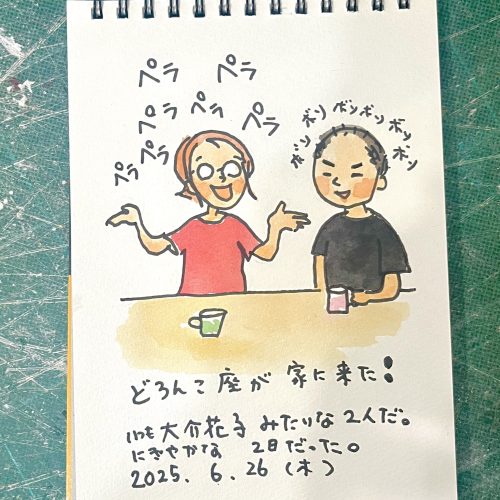 ペラ ペラ
ペラ ペラ ペラ
ペラ ペラ
ボソ ボソ ボソ ボソ ボソ ボソ
どろんこ座が家に来た!
いつも大介花子みたいな2人だ。
にぎやかな 2日だった。
2025. 6. 26 (木)